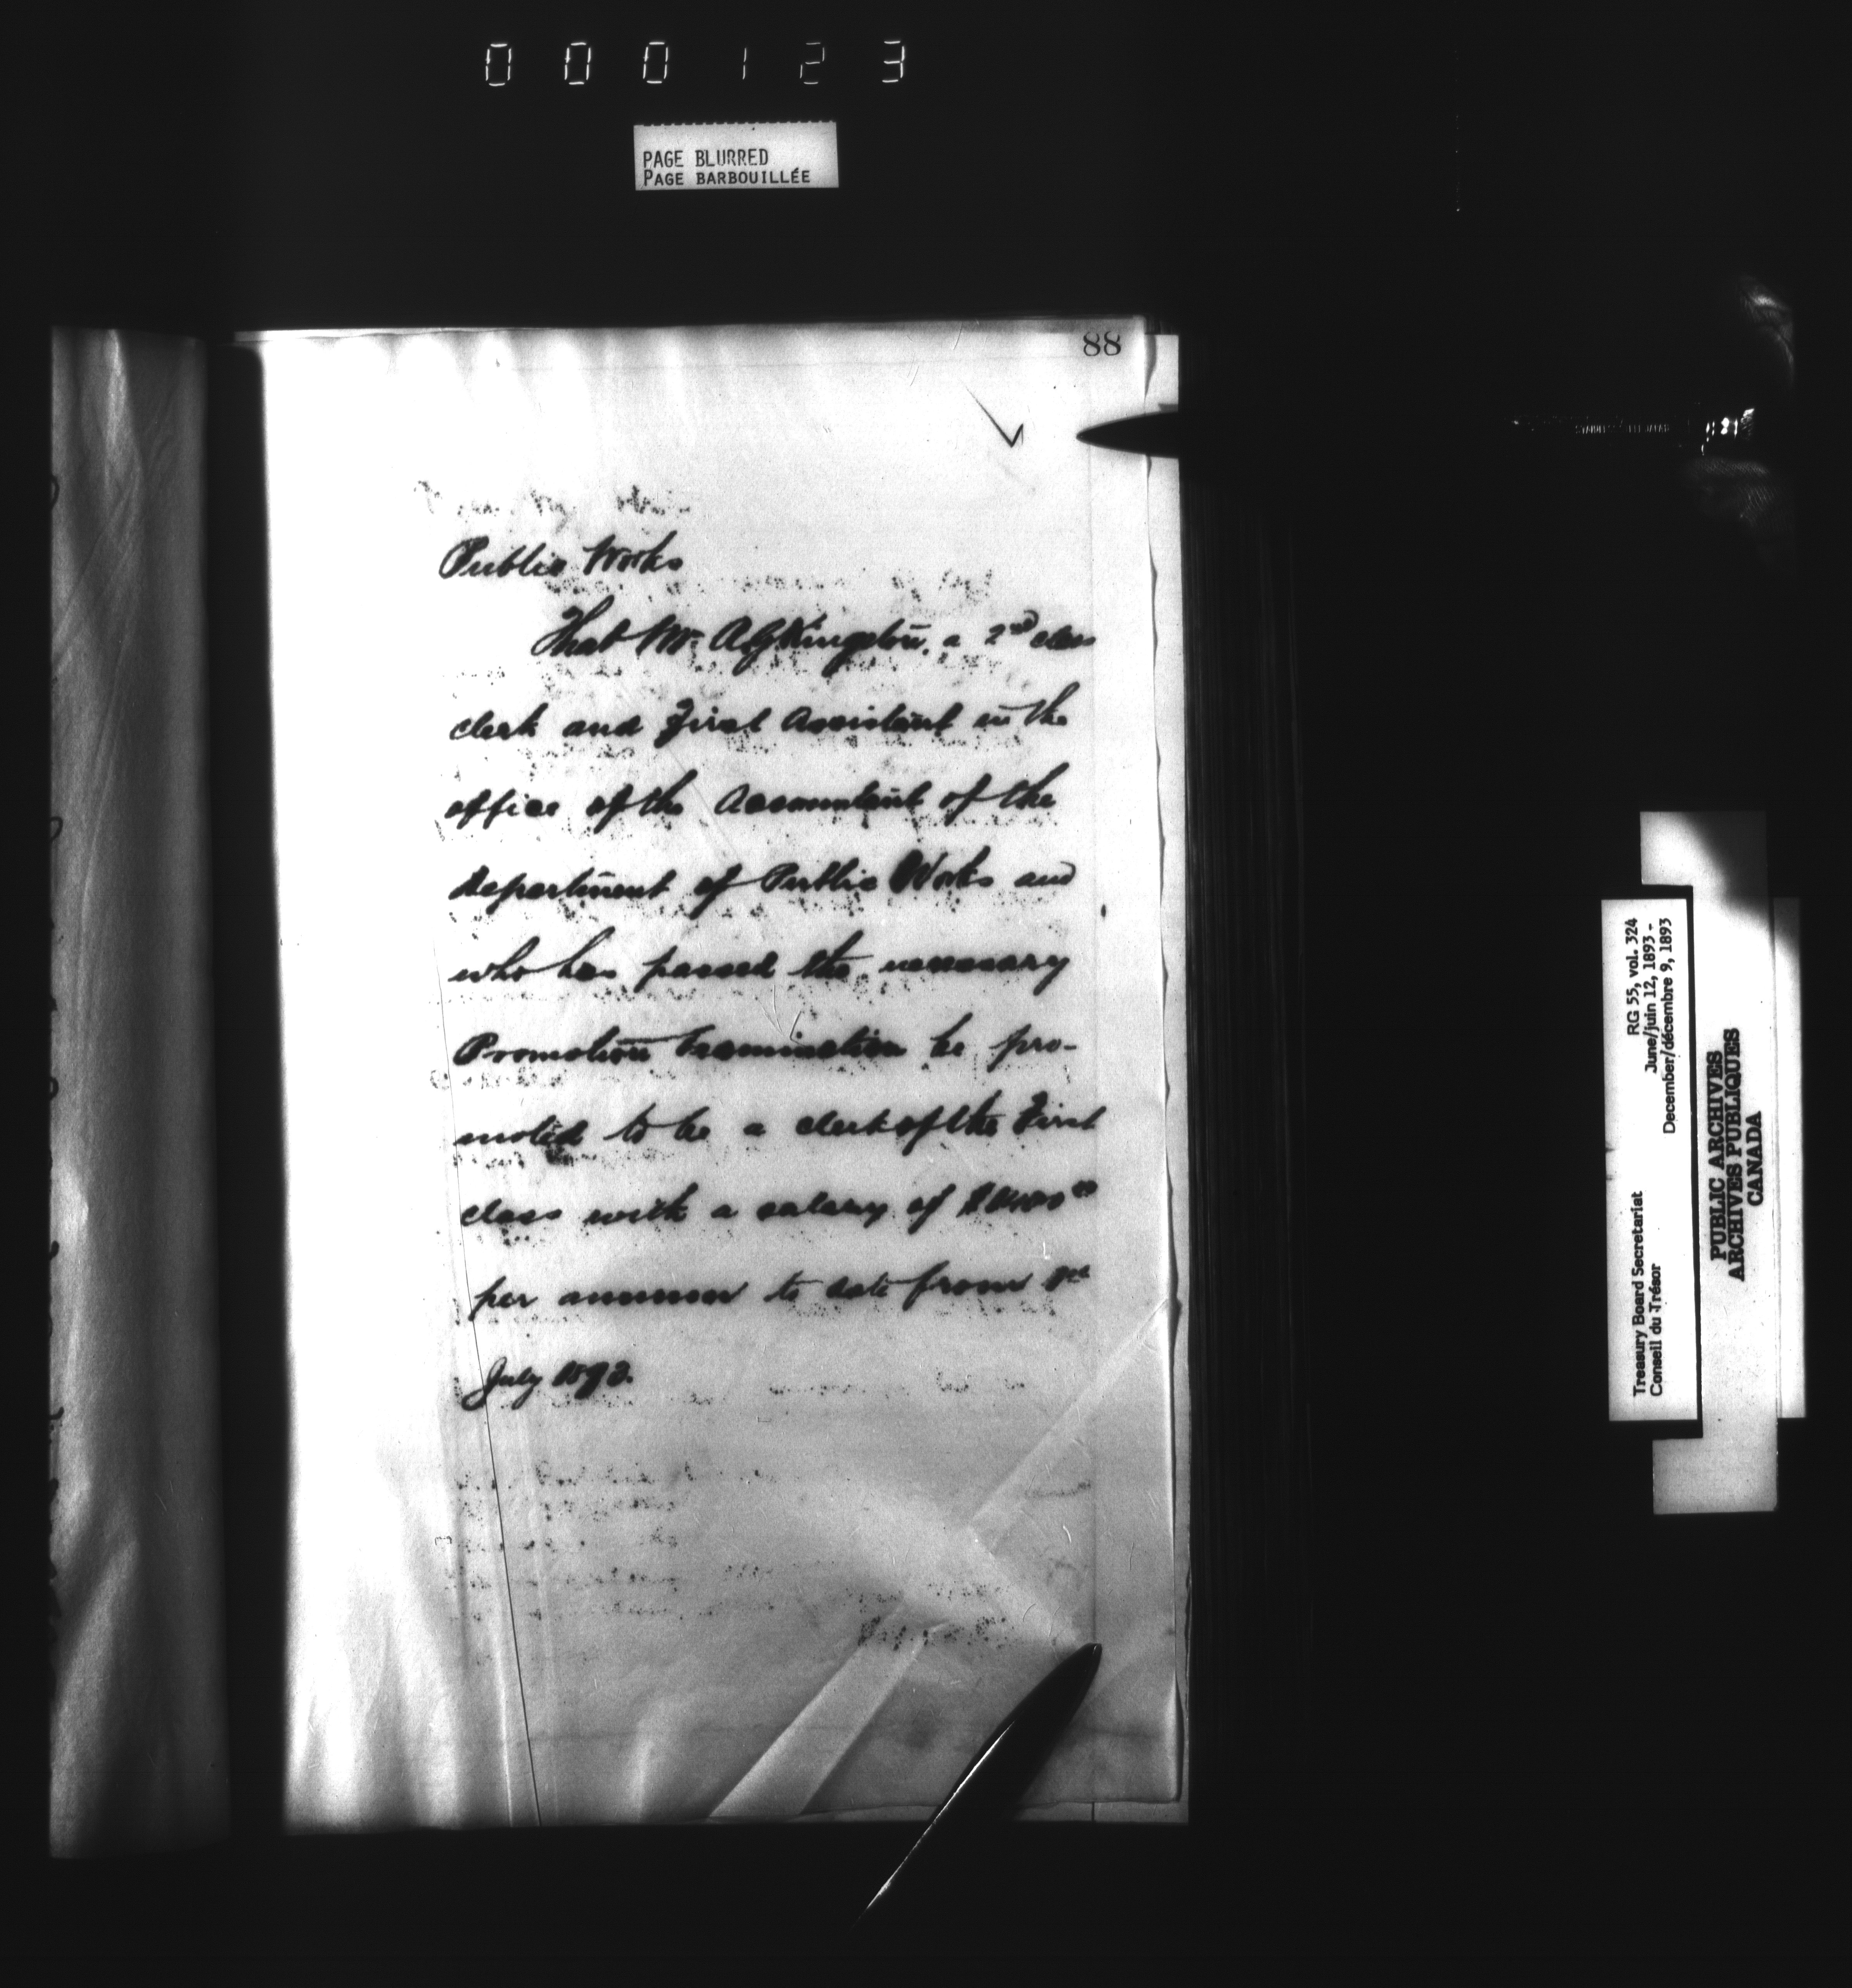 000123
PAGE BLURRED
PAGE BARBOUILLÉE
88
Public Works
That Mr. A G Kingston, a 2nd class
clerk and First Assistant in the
office of the Accountant of the
department of Public Works and
who has passed the necessary
Promotion Examination be pro-
moted to be a clerk of the First
class with a salary of
per annum to date from 1st
July 1893.
RG 55, vol. 324
June/juin 12, 1893 -
December/décembre 9, 1893
Treasury Board Secretariat
Conseil du Trésor
PUBLIC ARCHIVES
ARCHIVES PUBLIQUES
CANADA